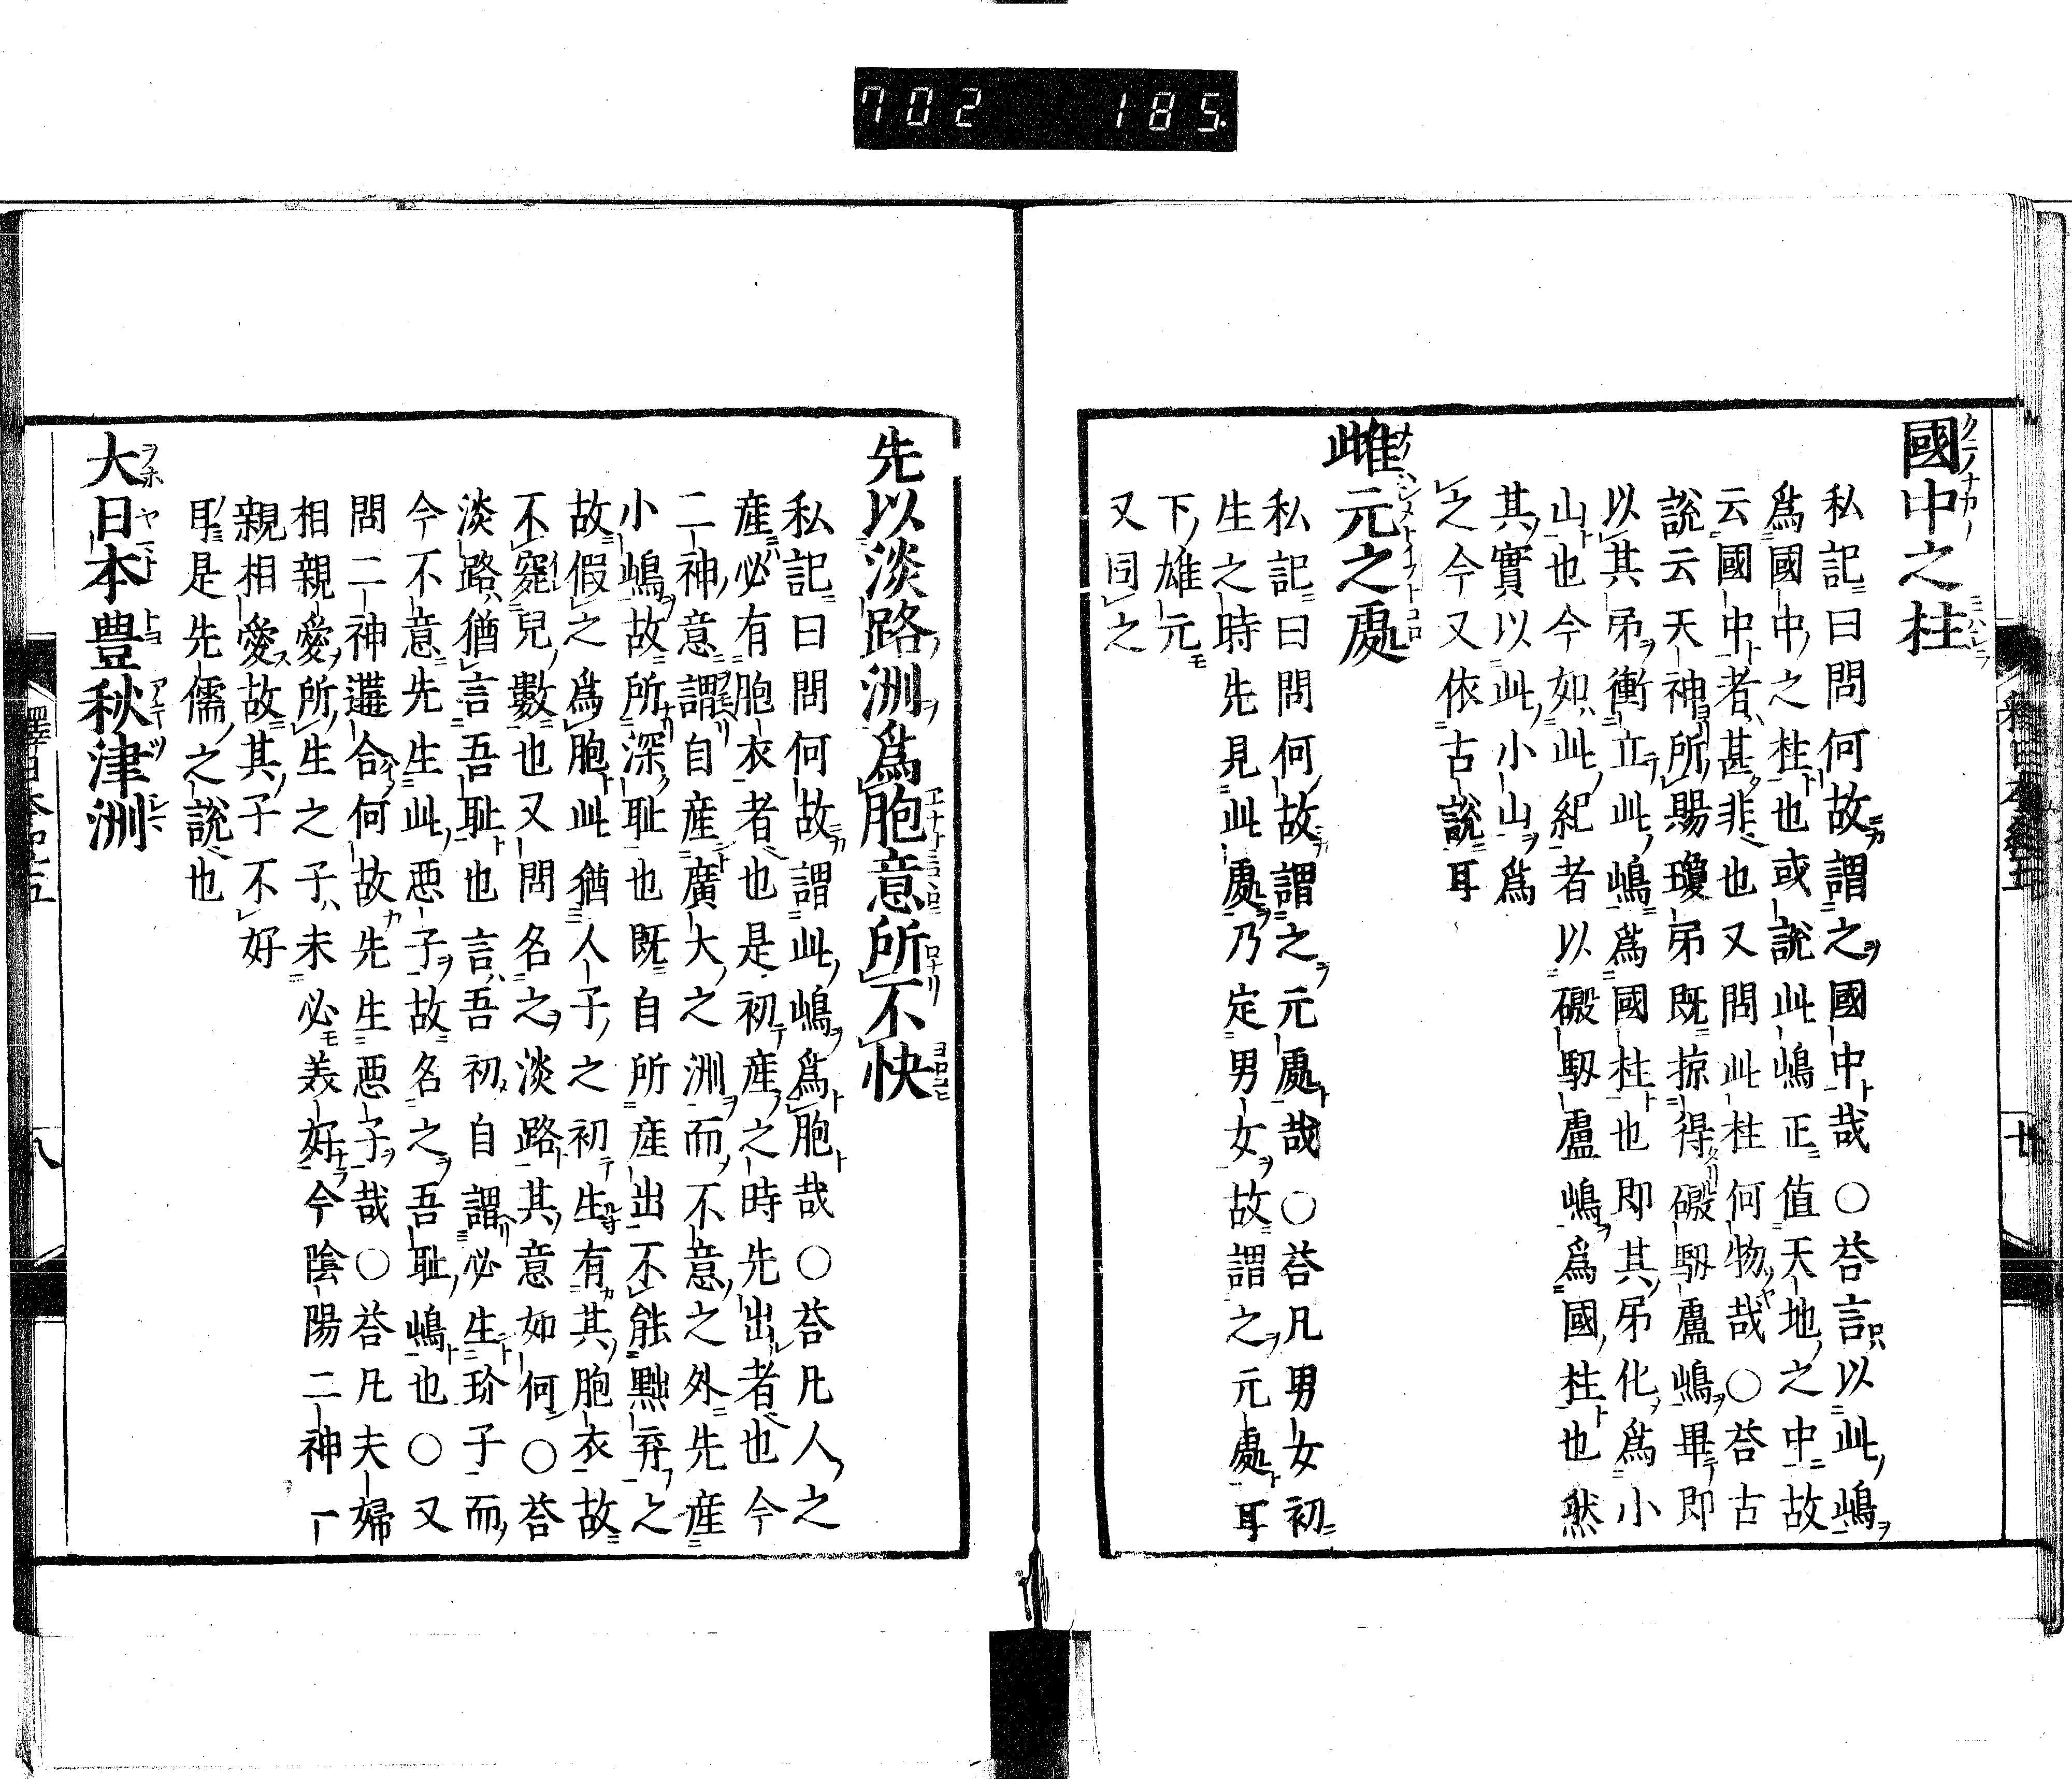 702 185.
國中之柱
私記曰問何故謂之國中哉○荅言以此嶋
爲國中之柱也或說此嶋正值天地之中故
云國中者甚非也又問此柱何物哉○荅古
說云天神所賜瓊矛既掠得磤馭盧嶋畢即
以其矛衝立此嶋爲國柱也即其矛化爲小
山也今如此紀者以磤馭盧嶋爲國柱也然
其實以此小山爲
之今又依古說耳
雌元之處
私記曰問何故謂之元處哉○荅凡男女初
生之時先見此處乃定男女故謂之元處耳
下雄元
又同之
先以淡路洲爲胞意所不快
私記曰問何故謂此嶋爲胞哉○荅凡人之
産必有胞衣者也是初産之時先出者也今
二神意謂自産廣大之洲而不意之外先産
小嶋故所深耻也既自所産出不能黜弃之
故假之爲胞此猶人子之初生有其胞衣故
不寵兒數也又問名之淡路其意如何○荅
淡路猶言吾耻也言吾初自謂必生珍子而
今不意先生此惡子故名之吾耻嶋也○又
問二神遘合何故先生惡子哉○荅凡夫婦
相親愛所生之子未必美好今陰陽二神一
親相愛故其子不好
耳是先儒之說也
大日本豊秋津洲